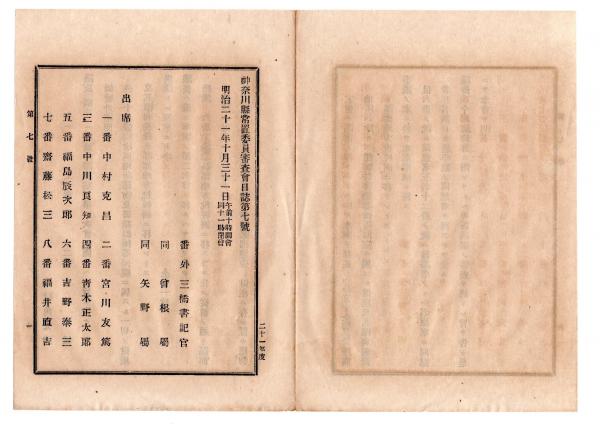 神奈川縣常置委員審査會日誌第七號
明治二十一年十月三十一日午前十時開會同十一時閉會
番外三橋書記官
同曾根屬
同矢野屬
出席
一番中村克昌 二番宮川友篤
三番中川良知 四番青木正太郎
五番福島辰次郎 六番吉野泰三
七番齋藤松三 八番福井直吉
第七號
一
二十一年度